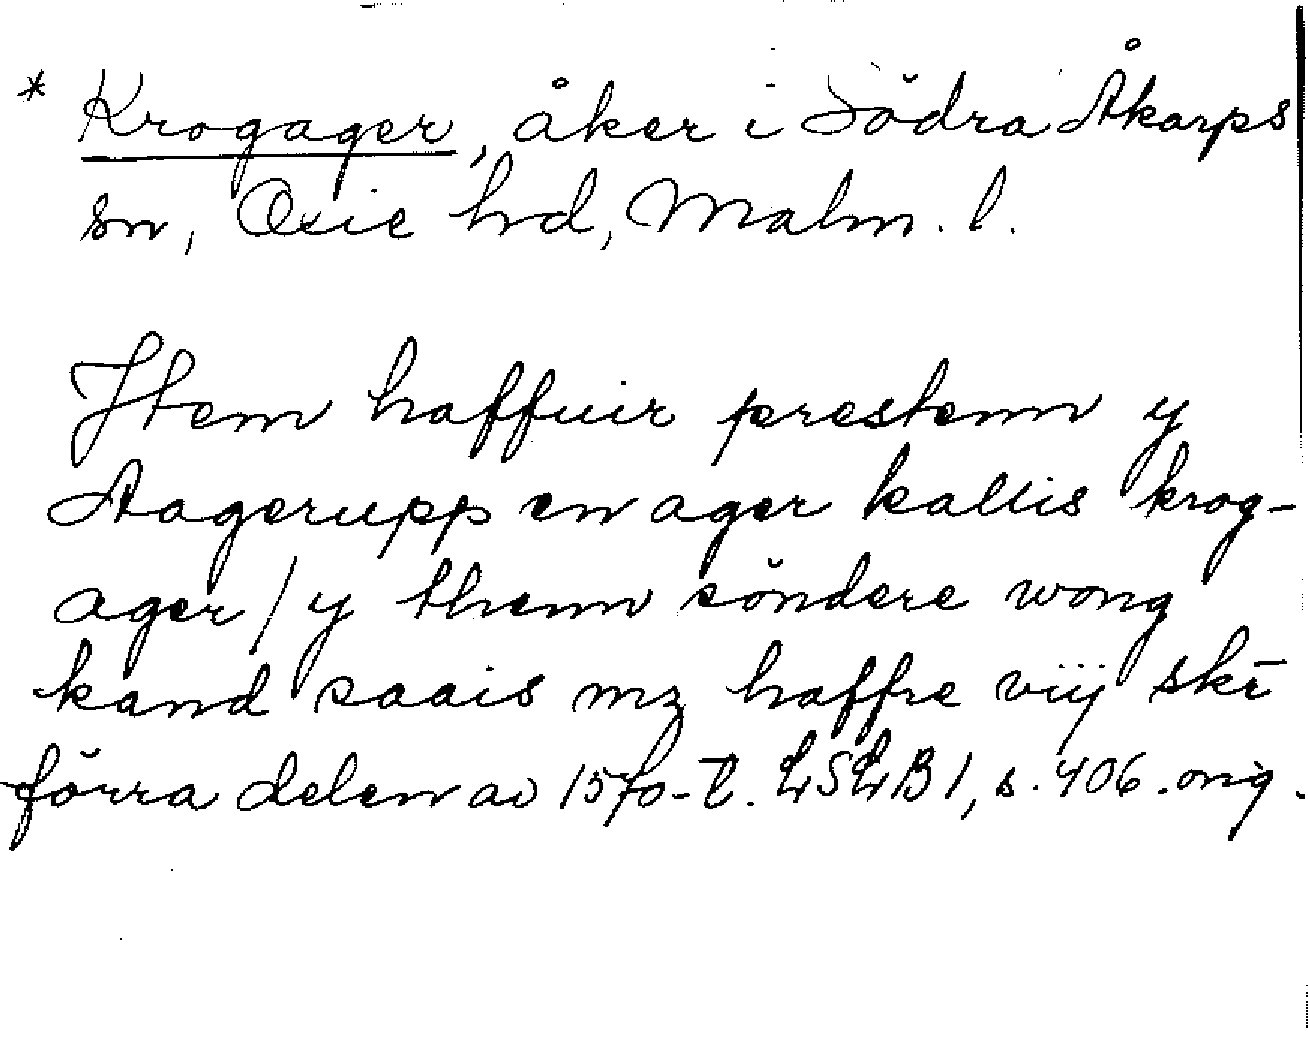 * Krogager, åker i Södra Åkarps
sn, Oxie hrd, Malm. l.
Item haffuir prestenn y
Aagerupp en ager kallis krog-
ager / y thenn söndere wong
kand saais mz haffre viij skē
förra delen av 1570-t. LSLB 1, s. 406. orig.